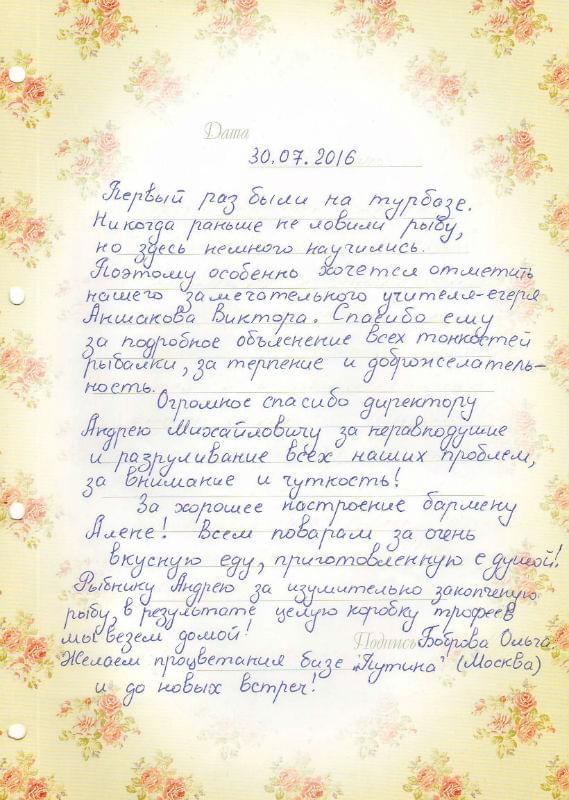 Дата
30.07.2016
Первый раз были на турбазе.
Никогда раньше не ловили рыбу,
но здесь немного научились.
Поэтому особенно хочется отметить
нашего замечательного учителя-егеря
Аншакова Виктора. Спасибо ему
за подробное объяснение всех тонкостей
рыбалки, за терпение и доброжелатель-
ность.
Огромное спасибо директору
Андрею Михайловичу за неравнодушие
и разруливание всех наших проблем,
за внимание и чуткость!
За хорошее настроение бармену
Алене! Всем поварам за очень
вкусную еду, приготовленную с душой!
Рыбнику Андрею за изумительно закопченую
рыбу, в результате целую коробку трофеев
мы везем домой!
Подпись Боброва Ольга
Желаем процветания базе "Путина" (Москва)
и до новых встреч!